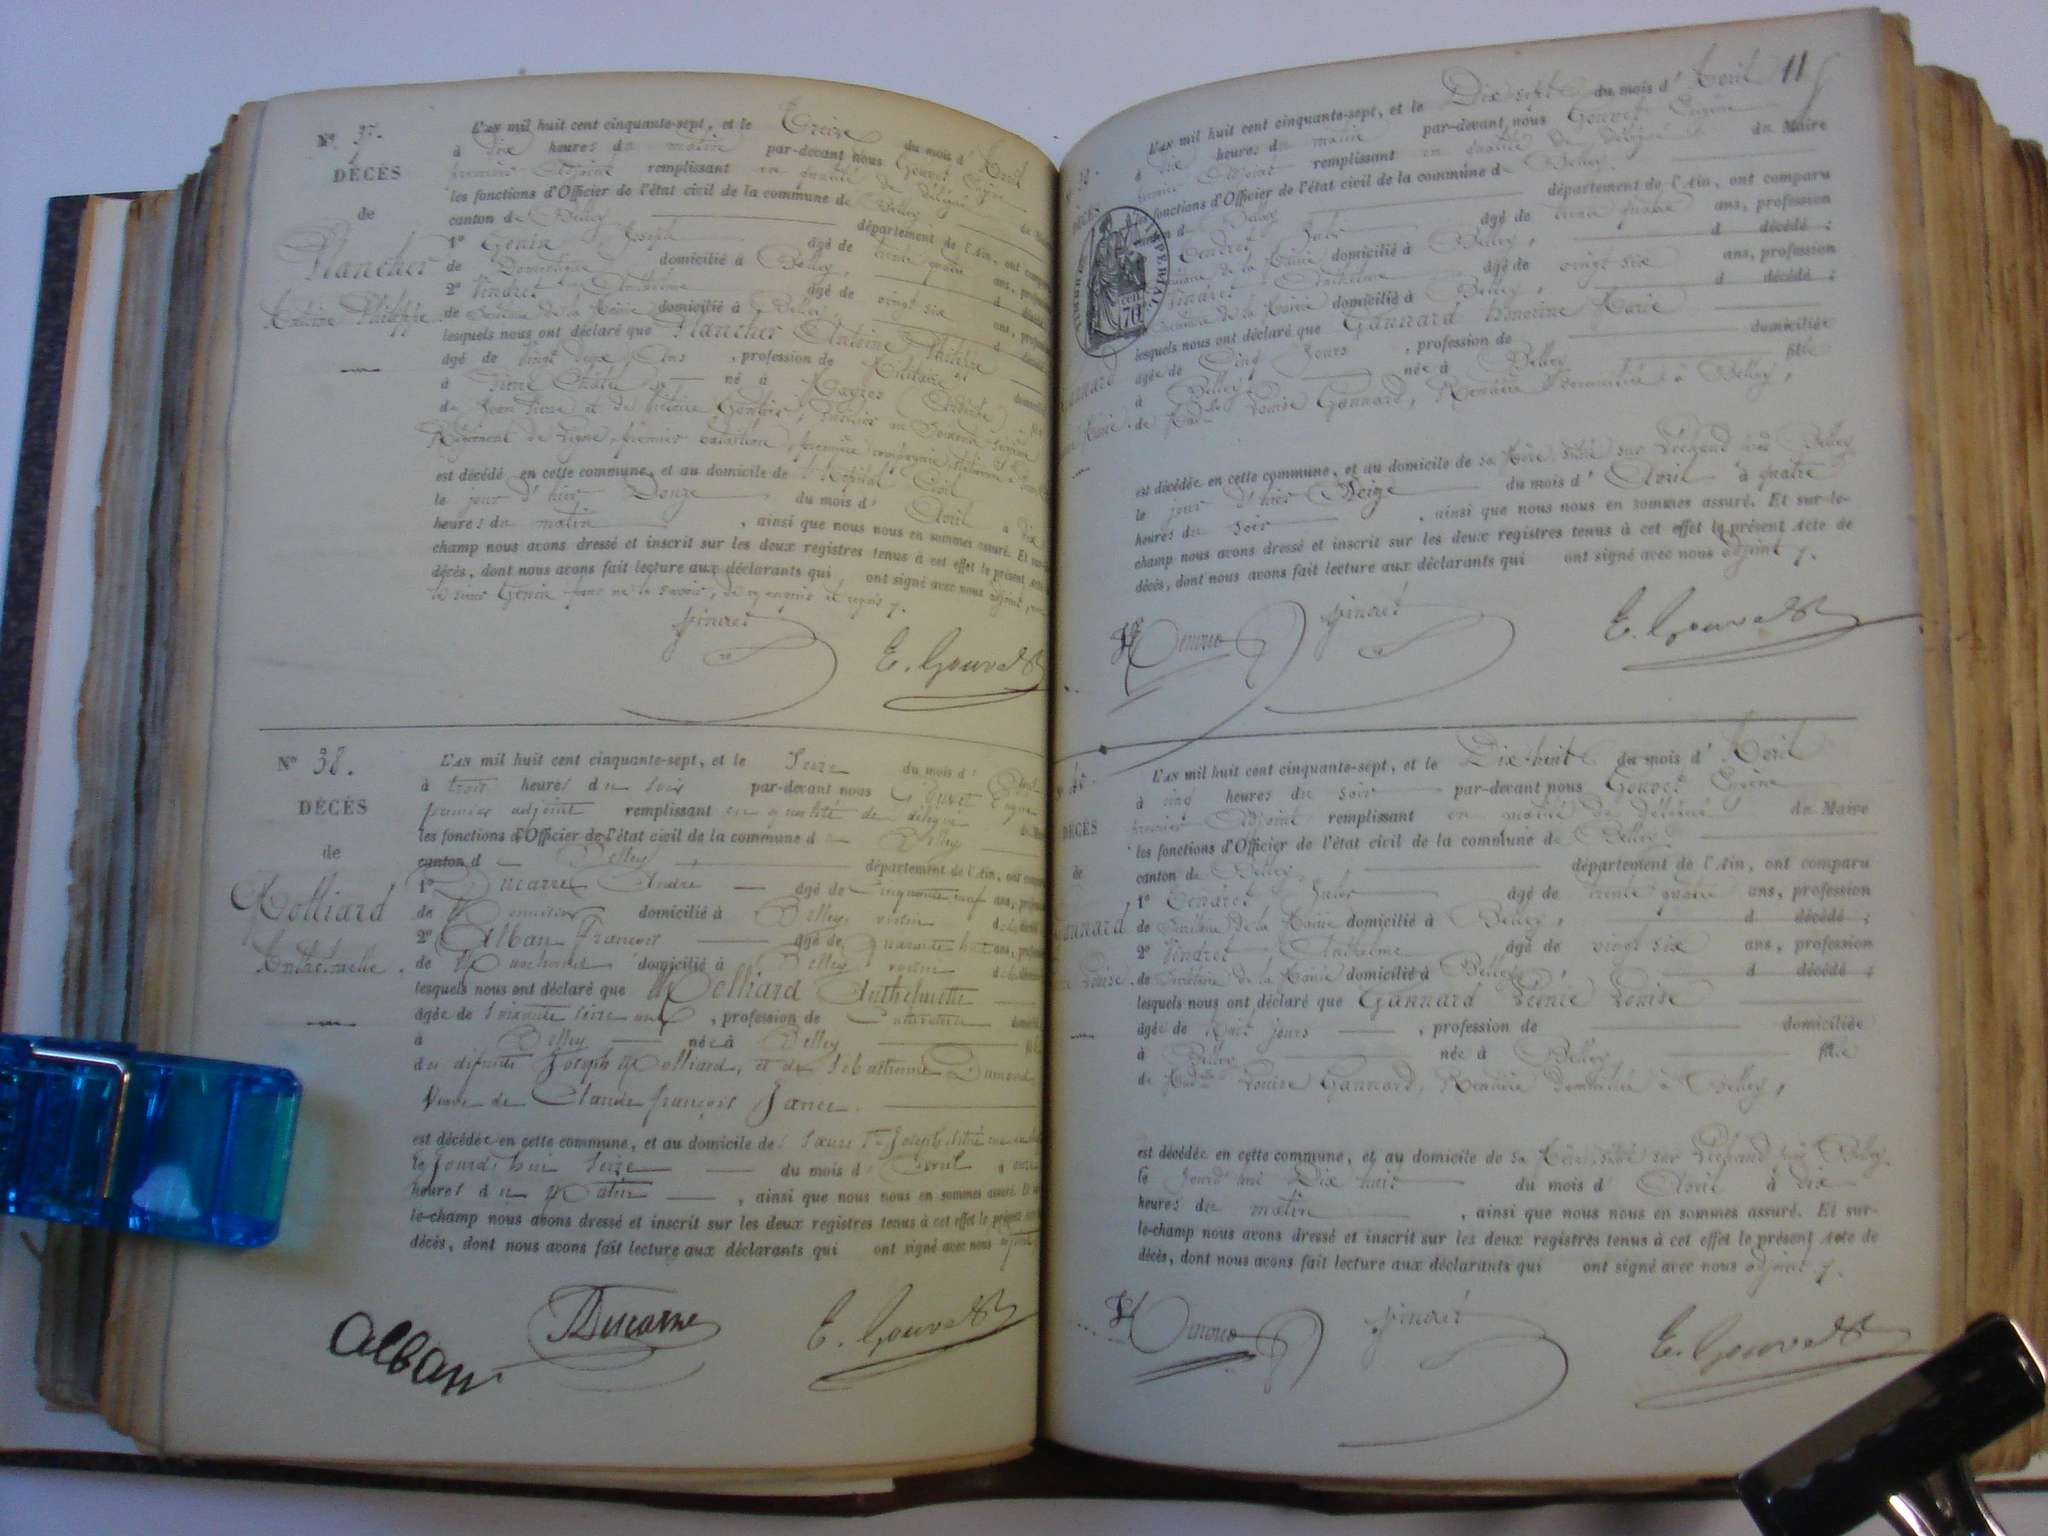 N° 37.
DÉCÈS
de
Plancher
Antoine Philippe
L'AN mil huit cent cinquante-sept, et le Treize du mois d' Avril
à dix heures du matin par-devant nous Gouvet Eugène
premier Adjoint remplissant en qualité de délégué du Maire
les fonctions d'Officier de l'état civil de la commune de Belley
canton de Belley département de l'Ain, ont comparu
1° Genin Joseph âgé de trente quatre ans, profession
de Domestique domicilié à Belley, d décédé
2° Vindret Anthelme âgé de vingt six ans, profession
de Secrétaire de la Mairie domicilié à Belley d décédé
lesquels nous ont déclaré que Plancher Antoine Philippe
âgé de vingt deux Ans, profession de Militaire domicilié
à Pierre Châtel né à (Ardèche) fils
de Jean Pierre et de Victoire
Régiment de Ligne, premier bataillon, première compagnie
est décédé en cette commune, et au domicile de l'Hôpital Civil
le jour d'hier Douze du mois d' Avril à dix
heures du matin, ainsi que nous nous en sommes assuré. Et sur-le-
champ nous avons dressé et inscrit sur les deux registres tenus à cet effet le présent acte
décès, dont nous avons fait lecture aux déclarants qui ont signé avec nous adjoint, non
le sieur Genin pour ne le savoir, de ce enquis et requis.
Vindret
E. Gouvet
N° 38.
DÉCÈS
de
Molliard
Anthelmette.
L'AN mil huit cent cinquante-sept, et le Seize du mois d' Avril
à trois heures du soir par-devant nous Gouvet Eugène
premier adjoint remplissant en qualité de délégué du Maire
les fonctions d'Officier de l'état civil de la commune de Belley
canton d Belley, département de l'Ain, ont comparu
1° Ducarre André âgé de Cinquante neuf ans, profession
de Menuisier domicilié à Belley, voisin de la décédée
2° Alban François âgé de quarante huit ans, profession
de domicilié à Belley voisin de la décédée
lesquels nous ont déclaré que Molliard Anthelmette
âgée de soixante seize ans, profession de domiciliée
à Belley née à Belley fille
des défunts Joseph Molliard, et de Sébastienne Dumond
Veuve de Claude françois Janez.
est décédée en cette commune, et au domicile des Sœurs St Joseph
le jourd'hui seize du mois d' Avril à onze
heures du Matin, ainsi que nous nous en sommes assuré. Et sur-
le-champ nous avons dressé et inscrit sur les deux registres tenus à cet effet le présent acte
décès, dont nous avons fait lecture aux déclarants qui ont signé avec nous adjoint
Alban
Ducarre
E. Gouvet
115
39.
DÉCÈS
TIMBRE IMPÉRIAL
70
L'AN mil huit cent cinquante-sept, et le Dix sept du mois d' Avril
à dix heures du matin par-devant nous Gouvet Eugène
premier Adjoint remplissant en qualité de délégué du Maire
les fonctions d'Officier de l'état civil de la commune de Belley
canton d Belley département de l'Ain, ont comparu
Tendret Jules âgé de trente quatre ans, profession
de la Mairie domicilié à Belley, d décédé ;
Vindret Anthelme âgé de vingt six ans, profession
Secrétaire de la Mairie domicilié à Belley, d décédé ;
lesquels nous ont déclaré que Gannard Honorine Marie
âgée de Cinq Jours, profession de domiciliée
à Belley, née à Belley fille
de Madlle Louise Gannard, Rentière domiciliée à Belley,
est décédée en cette commune, et au domicile de sa Mère, situé sur près Belley
le jour d'hier Seize du mois d' Avril à quatre
heures du soir, ainsi que nous nous en sommes assuré. Et sur-le-
champ nous avons dressé et inscrit sur les deux registres tenus à cet effet le présent acte de
décès, dont nous avons fait lecture aux déclarants qui ont signé avec nous adjoint.
Vindret
E. Gouvet
40.
DÉCÈS
de
Gannard
Louise.
L'AN mil huit cent cinquante-sept, et le Dix-huit du mois d' Avril
à cinq heures du soir par-devant nous Gouvet Eugène
premier Adjoint remplissant en qualité de délégué du Maire
les fonctions d'Officier de l'état civil de la commune de Belley
canton de Belley, département de l'Ain, ont comparu
1° Tendret Jules âgé de trente quatre ans, profession
de de la Mairie domicilié à Belley, d décédé ;
2° Vindret Anthelme âgé de vingt six ans, profession
de Secrétaire de la Mairie domicilié à Belley, d décédé ;
lesquels nous ont déclaré que Gannard Louise
âgée de huit jours, profession de domiciliée
à Belley née à Belley, fille
de Madlle Louise Gannard, Rentière domiciliée à Belley,
est décédée en cette commune, et au domicile de sa Mère, situé sur près Belley.
le jourd'hui Dix huit du mois d' Avril à dix
heures du matin, ainsi que nous nous en sommes assuré. Et sur-
le-champ nous avons dressé et inscrit sur les deux registres tenus à cet effet le présent acte de
décès, dont nous avons fait lecture aux déclarants qui ont signé avec nous adjoint.
Vindret
E. Gouvet